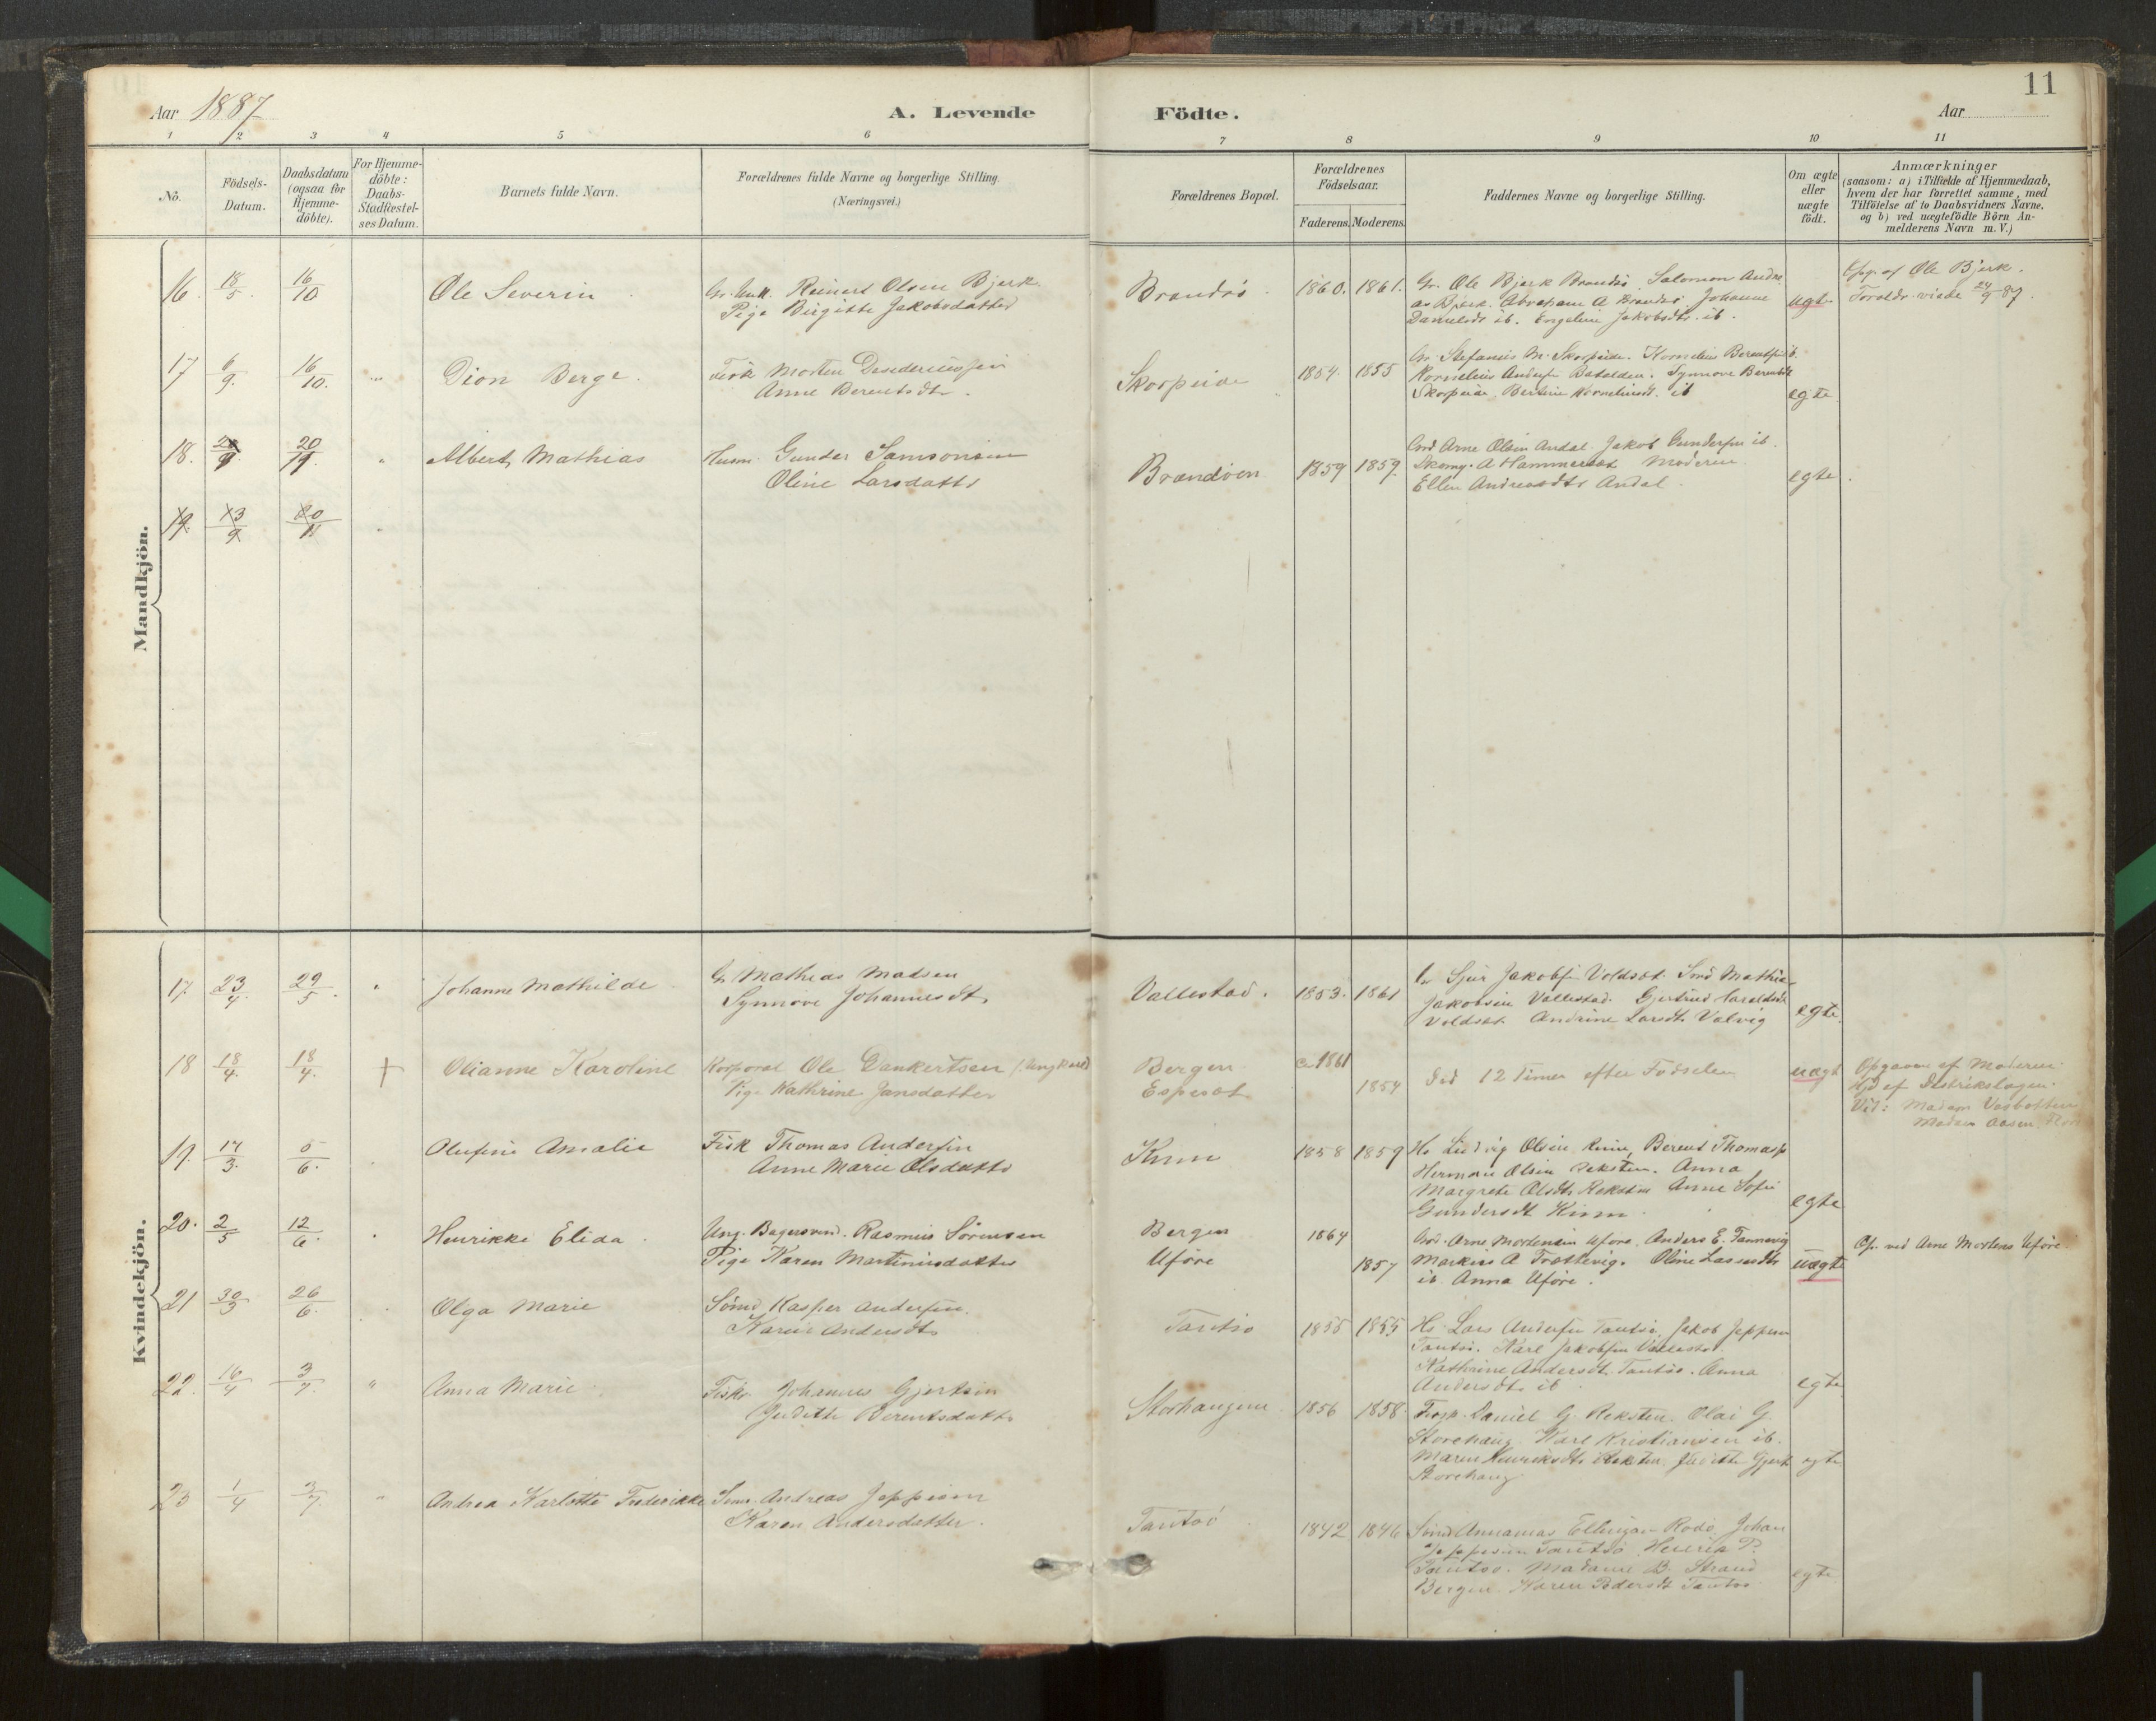 11
Aar 1887
A. Levende
Födte.
Aar
1 2 3 4 5 6 7 8 9 10 11
No.
Födsels-
Datum.
Daabsdatum
(ogsaa for
Hjemme-
döbte).
For Hjemme-
döbte:
Daabs-
Stadfæstel-
ses Datum.
Barnets fulde Navn.
Forældrenes fulde Navne og borgerlige Stilling.
(Næringsvei.)
Forældrenes Bopæl.
Forældrenes
Födselsaar.
Faderens. Moderens.
Faddernes Navne og borgerlige Stilling.
Om ægte
eller
uægte
födt.
Anmærkninger
(saasom: a) i Tilfælde af Hjemmedaab,
hvem der har forrettet samme, med
Tilföielse af to Daabsvidners Navne,
og b) ved uægtefödte Börn An-
melderens Navn m. V.)
Mandkjön.
16. 18/5. 16/10 Ole Severin
Reinert Olsen Bjerk
Pige Birgitte Jakobsdatter
Brandsö 1860. 1861.
Gr. Ole Bjerk Brandsö. Salomon Andre
as Bjerk. Abraham A Brandsö. Johanne
Danielsdt ib. Engeline Jakobsdt. ib.
ugt.
Opg. af Ole Bjerk.
Foraldr. viede 24/9 87.
17 6/9. 16/10. " Dion Berge.
Fisk Morten Desideriussen
Anne Berentsdtr.
Skorpeide 1854. 1855
Gr. Stefanus M. Skorpeide. Kornelius Berentsen ib.
Kornelius Andersen Batalden. Synnove Berentsdt
Skorpeide. Bertine Korneliusdt. ib
egte
18. 20/11. " Albert Mathias
Husm. Gunder Samsonsen
Oline Larsdattr
Brandöen 1859 1859.
Grd Arne Olsen Andal. Jakob Gundersen ib.
Skomg. A Hammerset Moderen
Ellen Andreasdtr Andal.
egte.
19. 13/9 20/11 "
Kvindekjön.
17. 23/4. 29/5. " Johanne Mathilde
G. Mathias Madsen
Synnöve Johannesdtr
Vallestad. 1853. 1861
Sjur Jakobsen Voldset. Mathias
Jakobsen Vallestad. Gjertrud Haraldsdt
Voldset. Andrine Larsdt. Valvig
egte.
18 18/4. 18/4. + Olianne Karoline
Korporal Ole Dankertsen (Ungkarl)
Pige Kathrine Jansdatter
Bergen
Espeset
Ca 1861
1854
Död 12 Timer efter Födselen
uægt
Opgaven af Moderen.
Hjd af Distriktslægen.
Vid: Madam Vasbotten
Madam Aasen
19. 14/3. 5/6. Olufine Amalie
Fisk Thomas Andersen
Anne Marie Olsdattr
Kinn 1858 1859
Hs Ludvig Olsen Kinn, Berent Thomass
Herman Olsen Reksten. Anna
Margrete Olsdtr Reksten Anne Sofie
Gundersdt Kinn.
egte
20. 2/5 12/6. Henrikke Elida.
Ung. Bagersvend. Rasmus Sörensen
Pige Karen Martinusdatter
Bergen
Uföre
1864
1857
Grd. Arne Mortensen Uföre. Anders E.
Markus A Trættevig. Oline Lassesdtr
ib. Anna Uföre.
uægte
Op. ved Arne Mortens Uföre.
21 30/3 26/6. Olga Marie
Kasper Andersen.
Karen Andersdtr
Tansö 1855 1855
Hs Lars Andersen Tansö, Jakob Jeppesen
Tansö. Karl Jakobsen Vallestad.
Kathrine Andersdt. Tansö. Anna
Andersdtr ib
egte
22. 16/4 3/7. " Anna Marie
Fisk. Johannes Gjertsen
Judithe Berentsdattr
Storhaugen 1856 1858
Daniel G. Reksten. Olai G.
Storehaug. Karl Kristiansen ib.
Maren Henriksdtr Reksten. Judithe Gjert
Storehaug
egte
23 1/4 3/7. " Andrea Karlotte Frederikke
Andreas Jeppesen
Karen Andersdatter.
Tansö 1842 1846
Annanias Ellingsen Rodö. Johan
Jeppesen Tansö. Henrik P.
Tansö. Madame B. Strand
Bergen. Karen Pedersdt Tansö
egte.